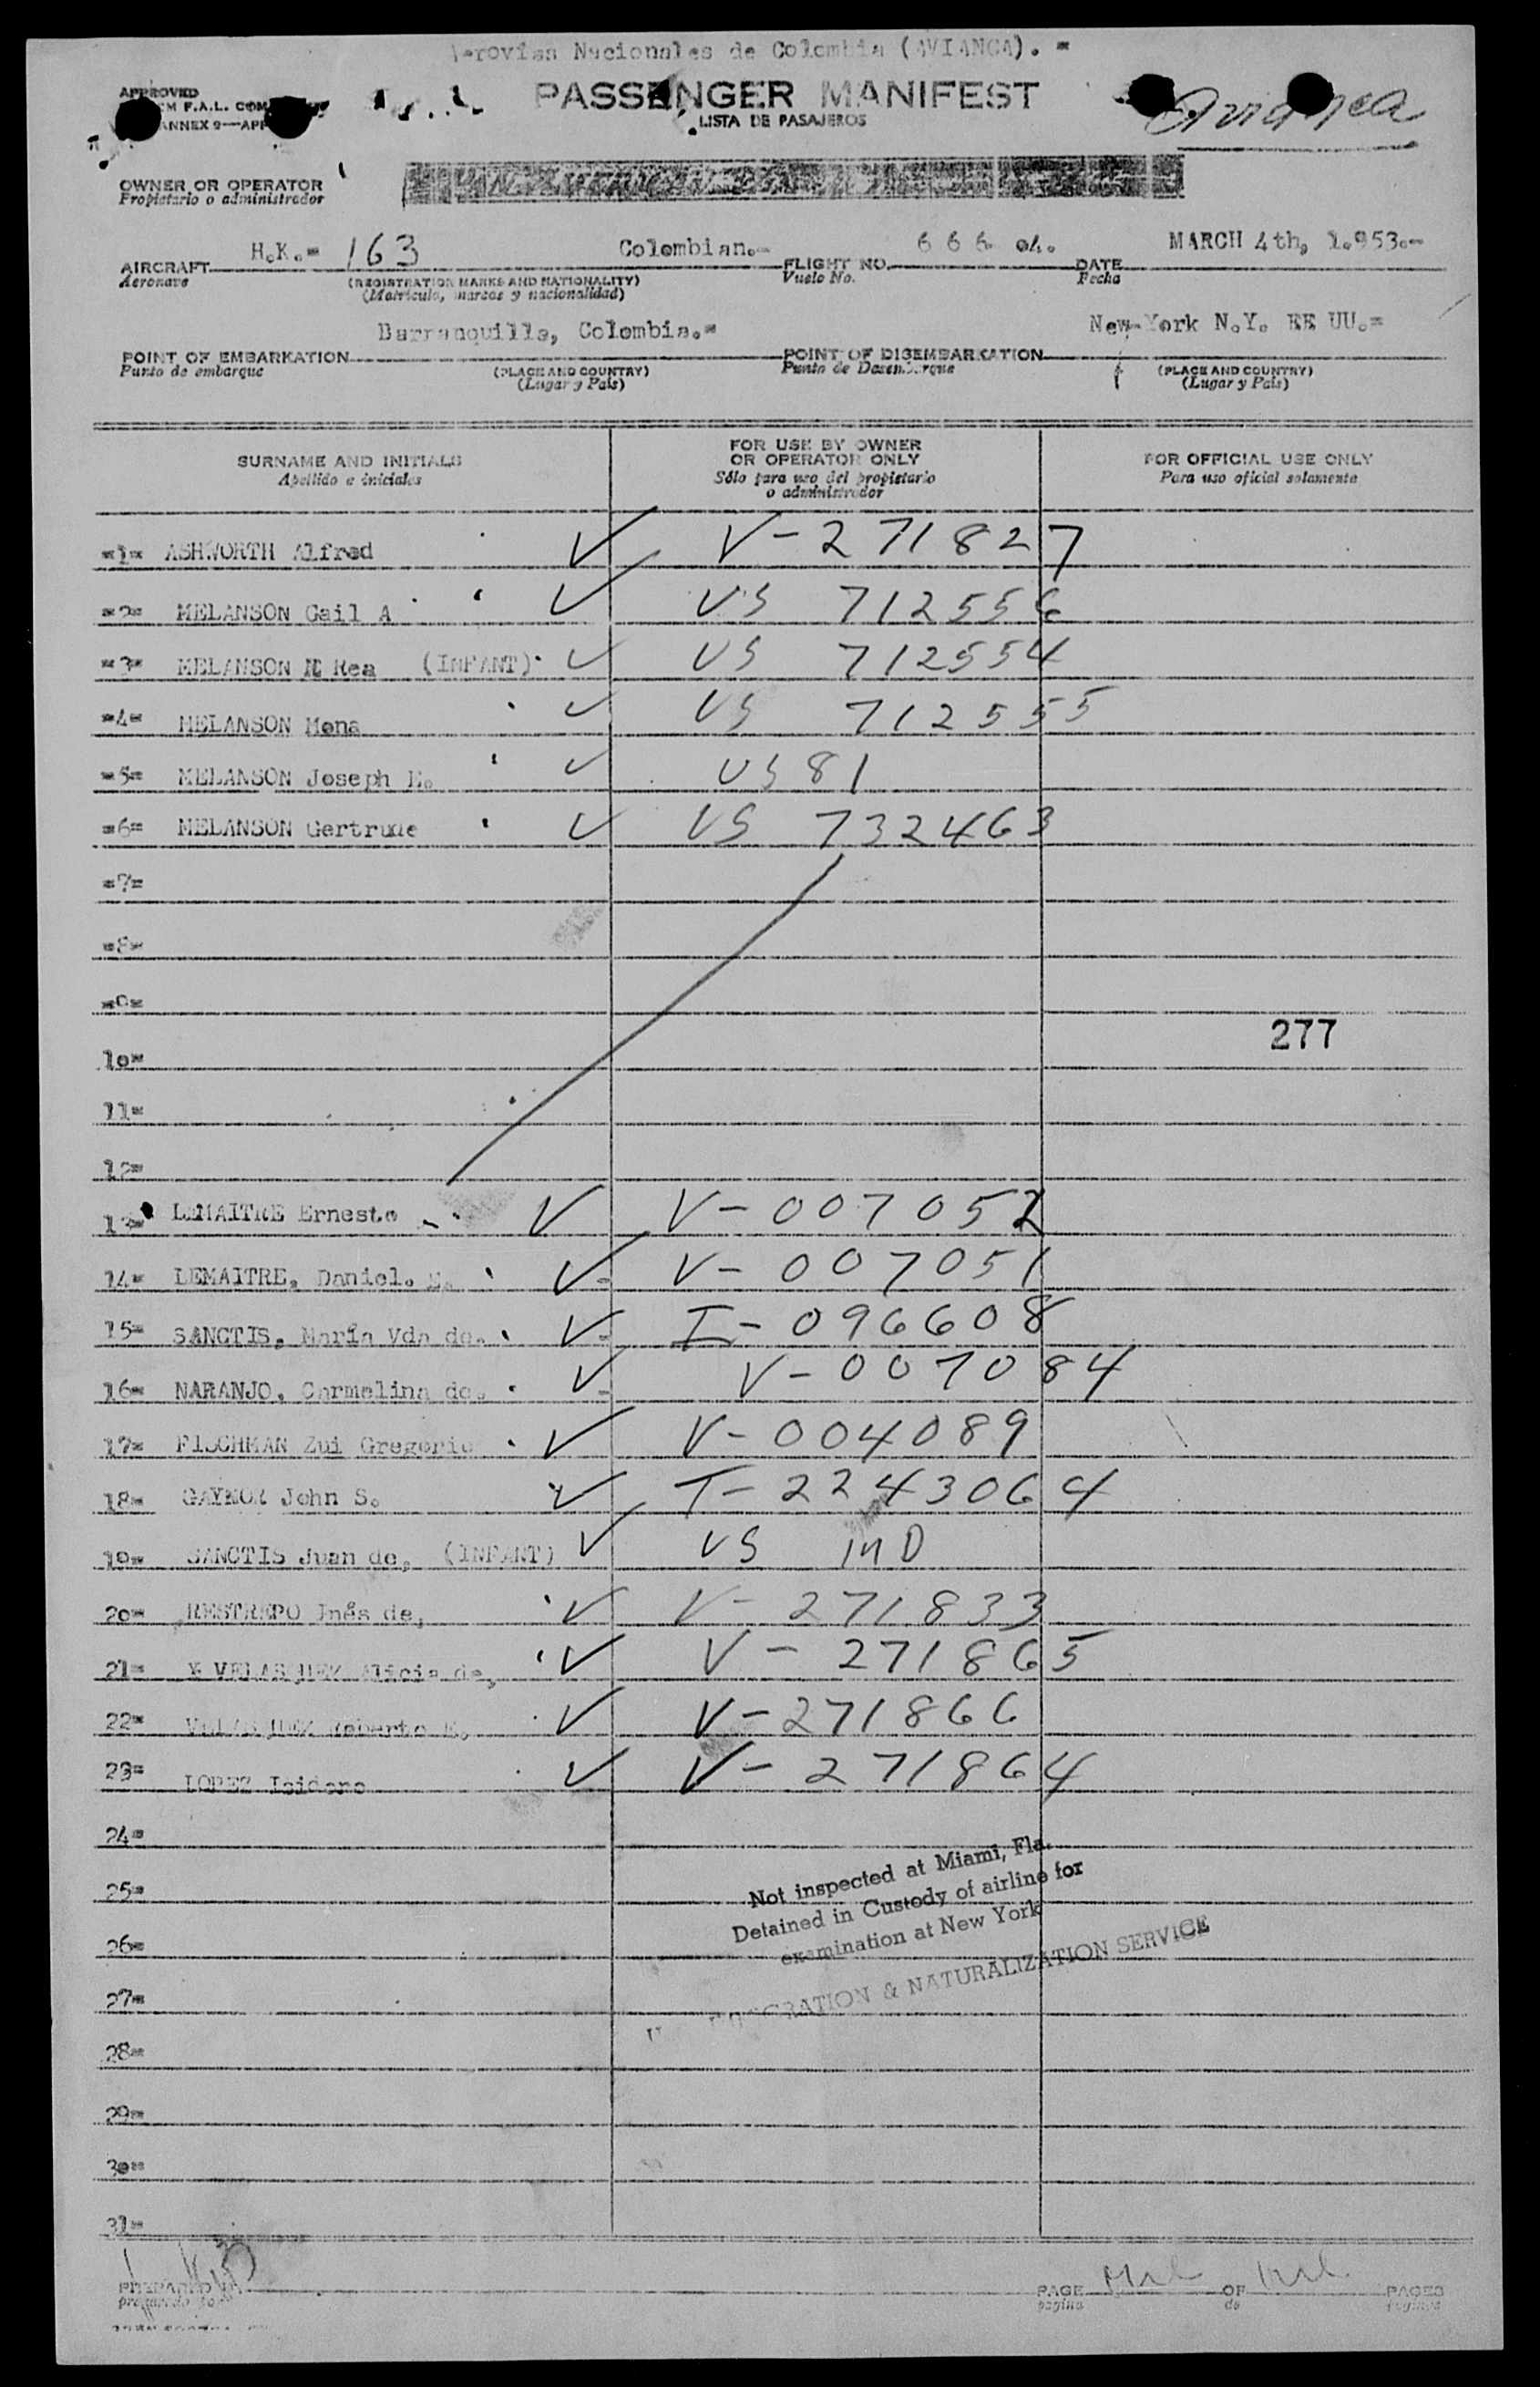 Aerovías Nacionales de Colombia (AVIANCA). =
PASSENGER MANIFEST
LISTA DE PASAJEROS
Avianca
APPROVED
F.A.L. COM
ANNEX 9—APP
OWNER OR OPERATOR
Propietario o administrador
AIRCRAFT H.K.= 163 Colombian.= FLIGHT NO. 666 04. DATE MARCH 4th, 1.953.=
Aeronave (REGISTRATION MARKS AND NATIONALITY) Vuelo No. Fecha
(Matrícula, marcas y nacionalidad)
POINT OF EMBARKATION Barranquilla, Colombia.= POINT OF DISEMBARKATION New-York N.Y. EE UU.=
Punto de embarque (PLACE AND COUNTRY) Punto de Desembarque (PLACE AND COUNTRY)
(Lugar y País) (Lugar y País)
SURNAME AND INITIALS FOR USE BY OWNER OR OPERATOR ONLY FOR OFFICIAL USE ONLY
Apellido e iniciales Sólo para uso del propietario o administrador Para uso oficial solamente
=1= ASHWORTH Alfred ✓ V-271827
=2= MELANSON Gail A ✓ US 712556
=3= MELANSON Rea (INFANT) ✓ US 712554
=4= MELANSON Mona ✓ US 712555
=5= MELANSON Joseph E. ✓ US 81
=6= MELANSON Gertrude ✓ US 732463
=7=
=8=
=9=
277
10=
11=
12=
13= LEMAITRE Ernesto ✓ V-007052
14= LEMAITRE, Daniel. E. ✓ V-007051
15= SANCTIS, María Vda de. ✓ I-096608
16= NARANJO, Carmelina de. ✓ V-007084
17= FISCHMAN Zui Gregorio ✓ V-004089
18= GAYNOR John S. ✓ T-2243064
19= SANCTIS Juan de, (INFANT) ✓ US
20= RESTREPO Inés de, ✓ V-271833
21= VELASQUEZ Alicia de, ✓ V-271865
22= VELASQUEZ Roberto E. ✓ V-271866
23= LOPEZ Isidoro ✓ V-271864
24=
25=
26=
27=
28=
29=
30=
31=
Not inspected at Miami, Fla.
Detained in Custody of airline for
examination at New York
IMMIGRATION & NATURALIZATION SERVICE
PREPARED BY PAGE OF PAGES
preparado por página de páginas